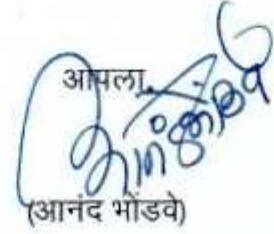 आपला
(आनंद भोंडवे)